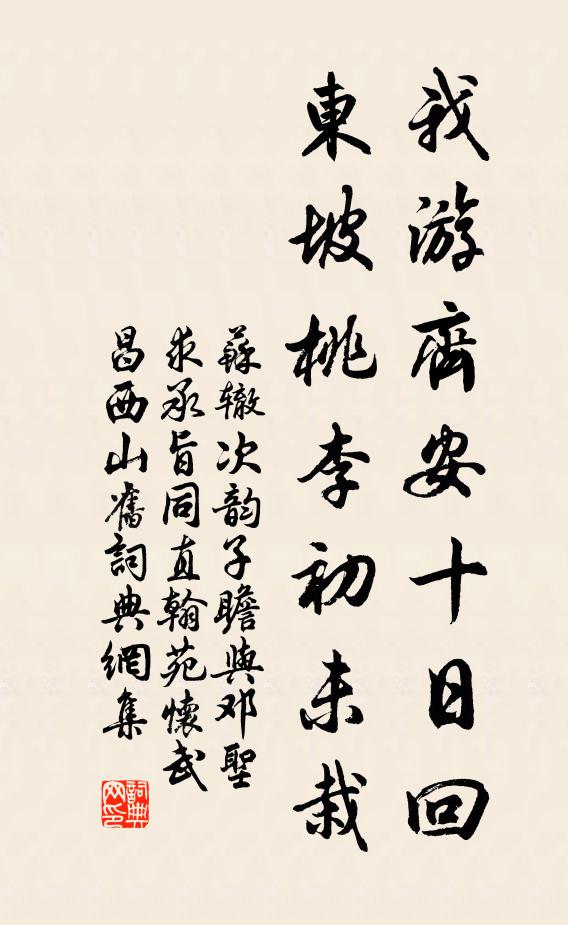 我游齊安十日回
東坡桃李初未栽
蘇辙次韵子瞻與邓聖
求承旨同直翰苑懷武
昌西山舊詞典網集
詞典
网印